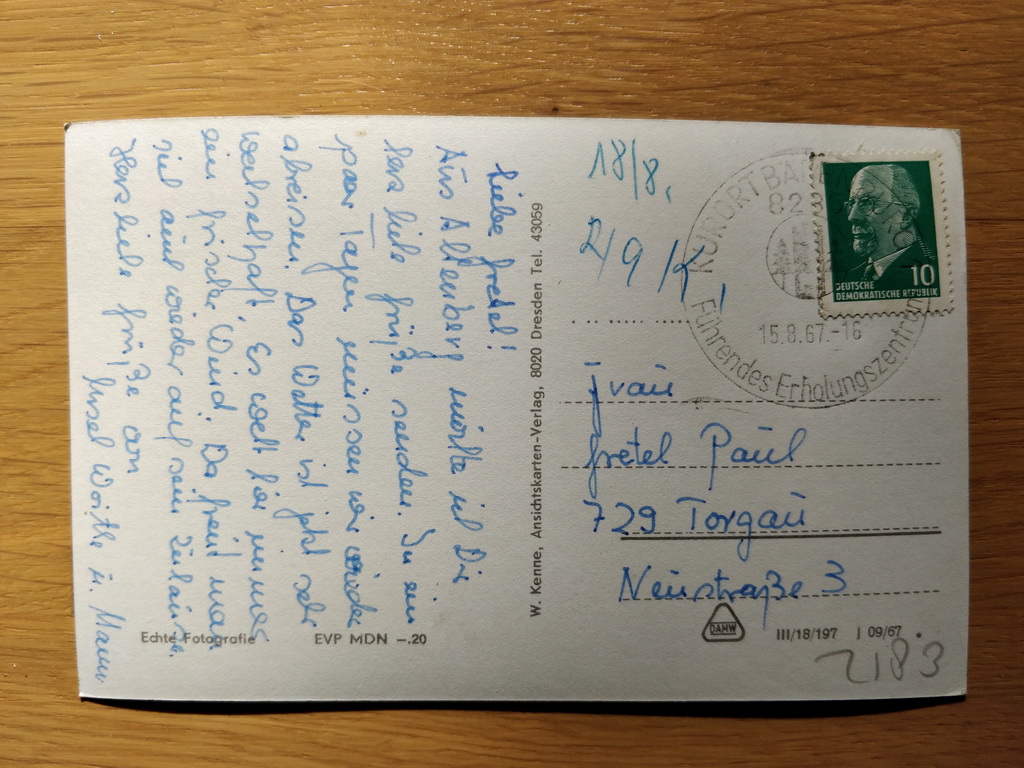 Liebe Gretel!
Aus Altenberg möchte ich Dir
herzliche Grüße senden. In ein
paar Tagen müssen wir wieder
abreisen. Das Wetter ist jetzt sehr
wechselhaft. Es weht hier immer
ein frischer Wind. Da freut man
sich auch wieder auf sein Zuhause.
Herzliche Grüße von
Ursel u. Mann
Echte Fotografie
EVP MDN –.20
W. Kenne, Ansichtskarten-Verlag, 8020 Dresden Tel. 43059
18/8.
2/9 K.
KURORT
82
15.8.67.-16
Führendes Erholungszentrum
10
DEUTSCHE
DEMOKRATISCHE REPUBLIK
Frau
Gretel Paul
729 Torgau
Neustraße 3
DAMW
III/18/197 I 09/67
2183